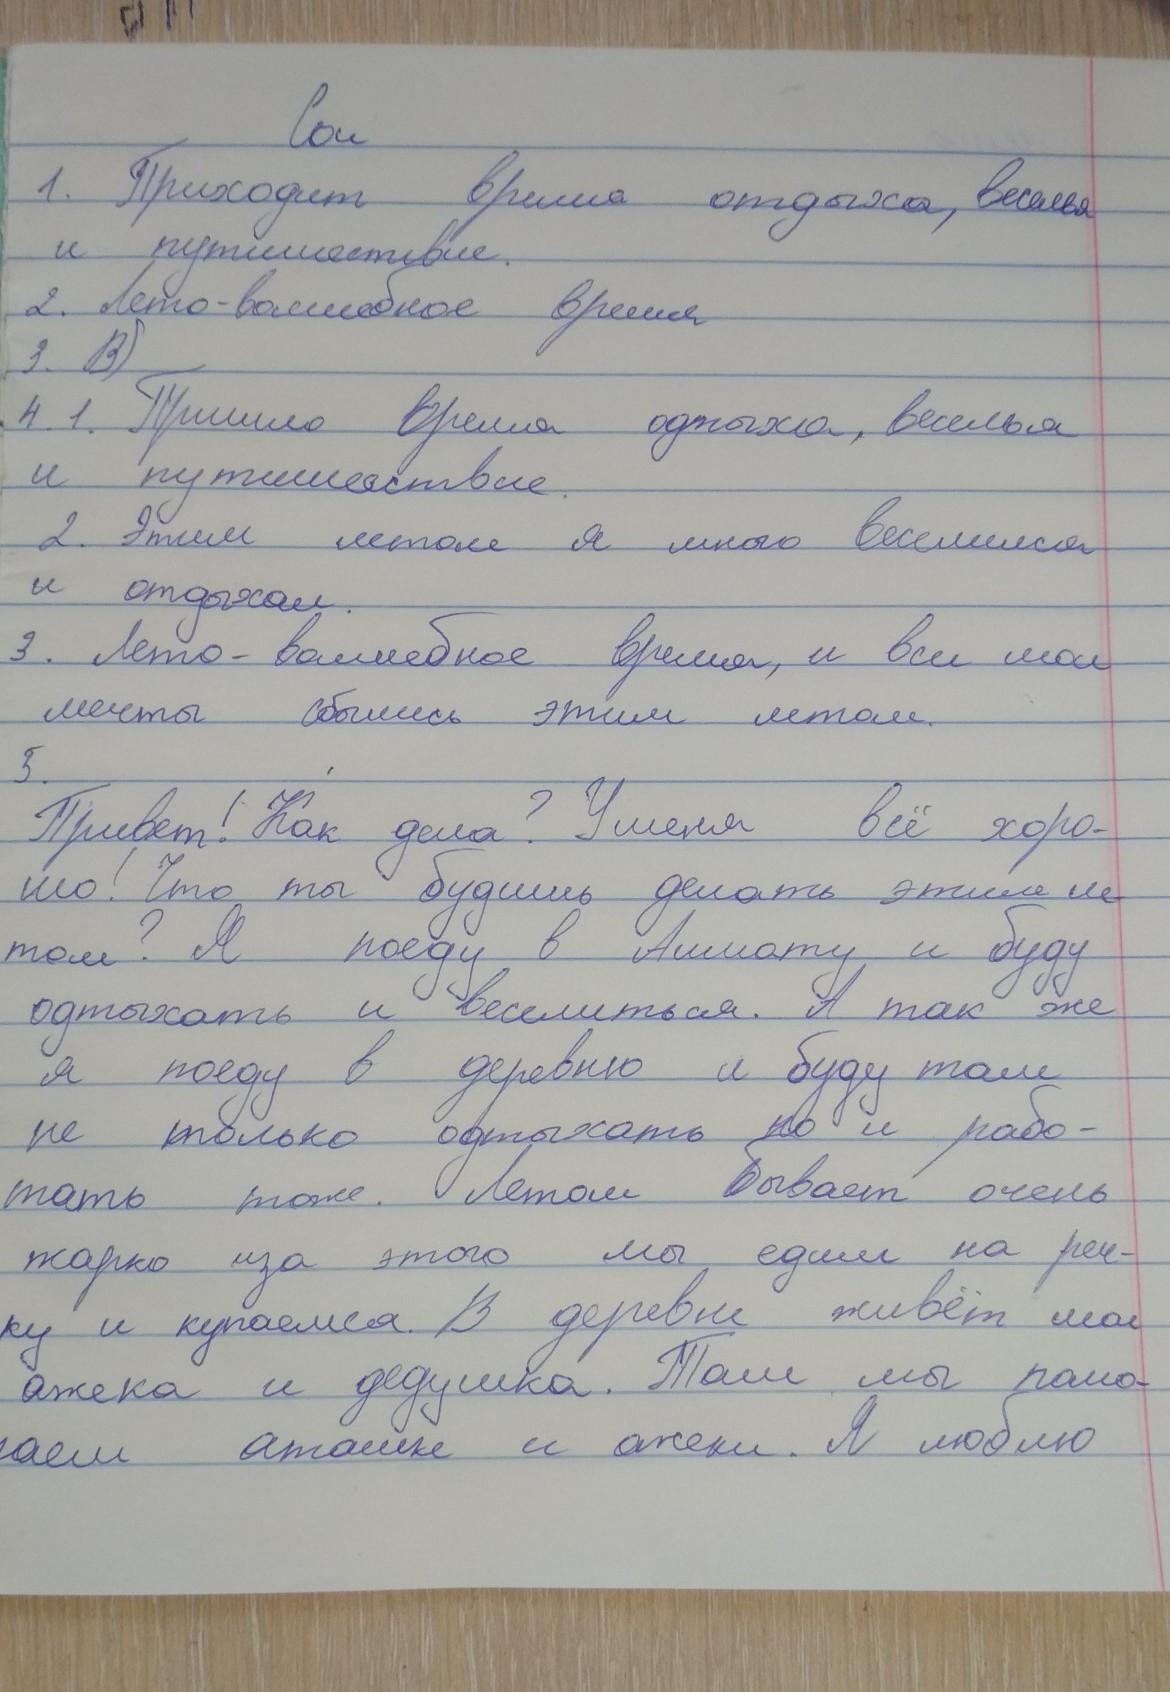 Соч
1. Приходит время отдыха, веселья
и путишествие.
2. Лето-волшебное время
3. В)
4. 1. Пришло время одтыха, веселья
и путишествие.
2. Этим летом я много веселился
и отдыхал.
3. Лето-волшебное время, и все мои
мечты сбылись этим летом.
5.
Привет! Как дела? Уменя всё хоро-
шо! Что ты будишь делать этим ле
том? Я поеду в Алмату и буду
одтыхать и веселиться. А так же
я поеду в деревню и буду там
не только одтыхать но и рабо-
тать тоже. Летом бывает очень
жарко иза этого мы едим на реч-
ку и купаемся. В деревне живёт моя
ажека и дедушка. Там мы помо-
гаем аташке и ажеки. Я люблю